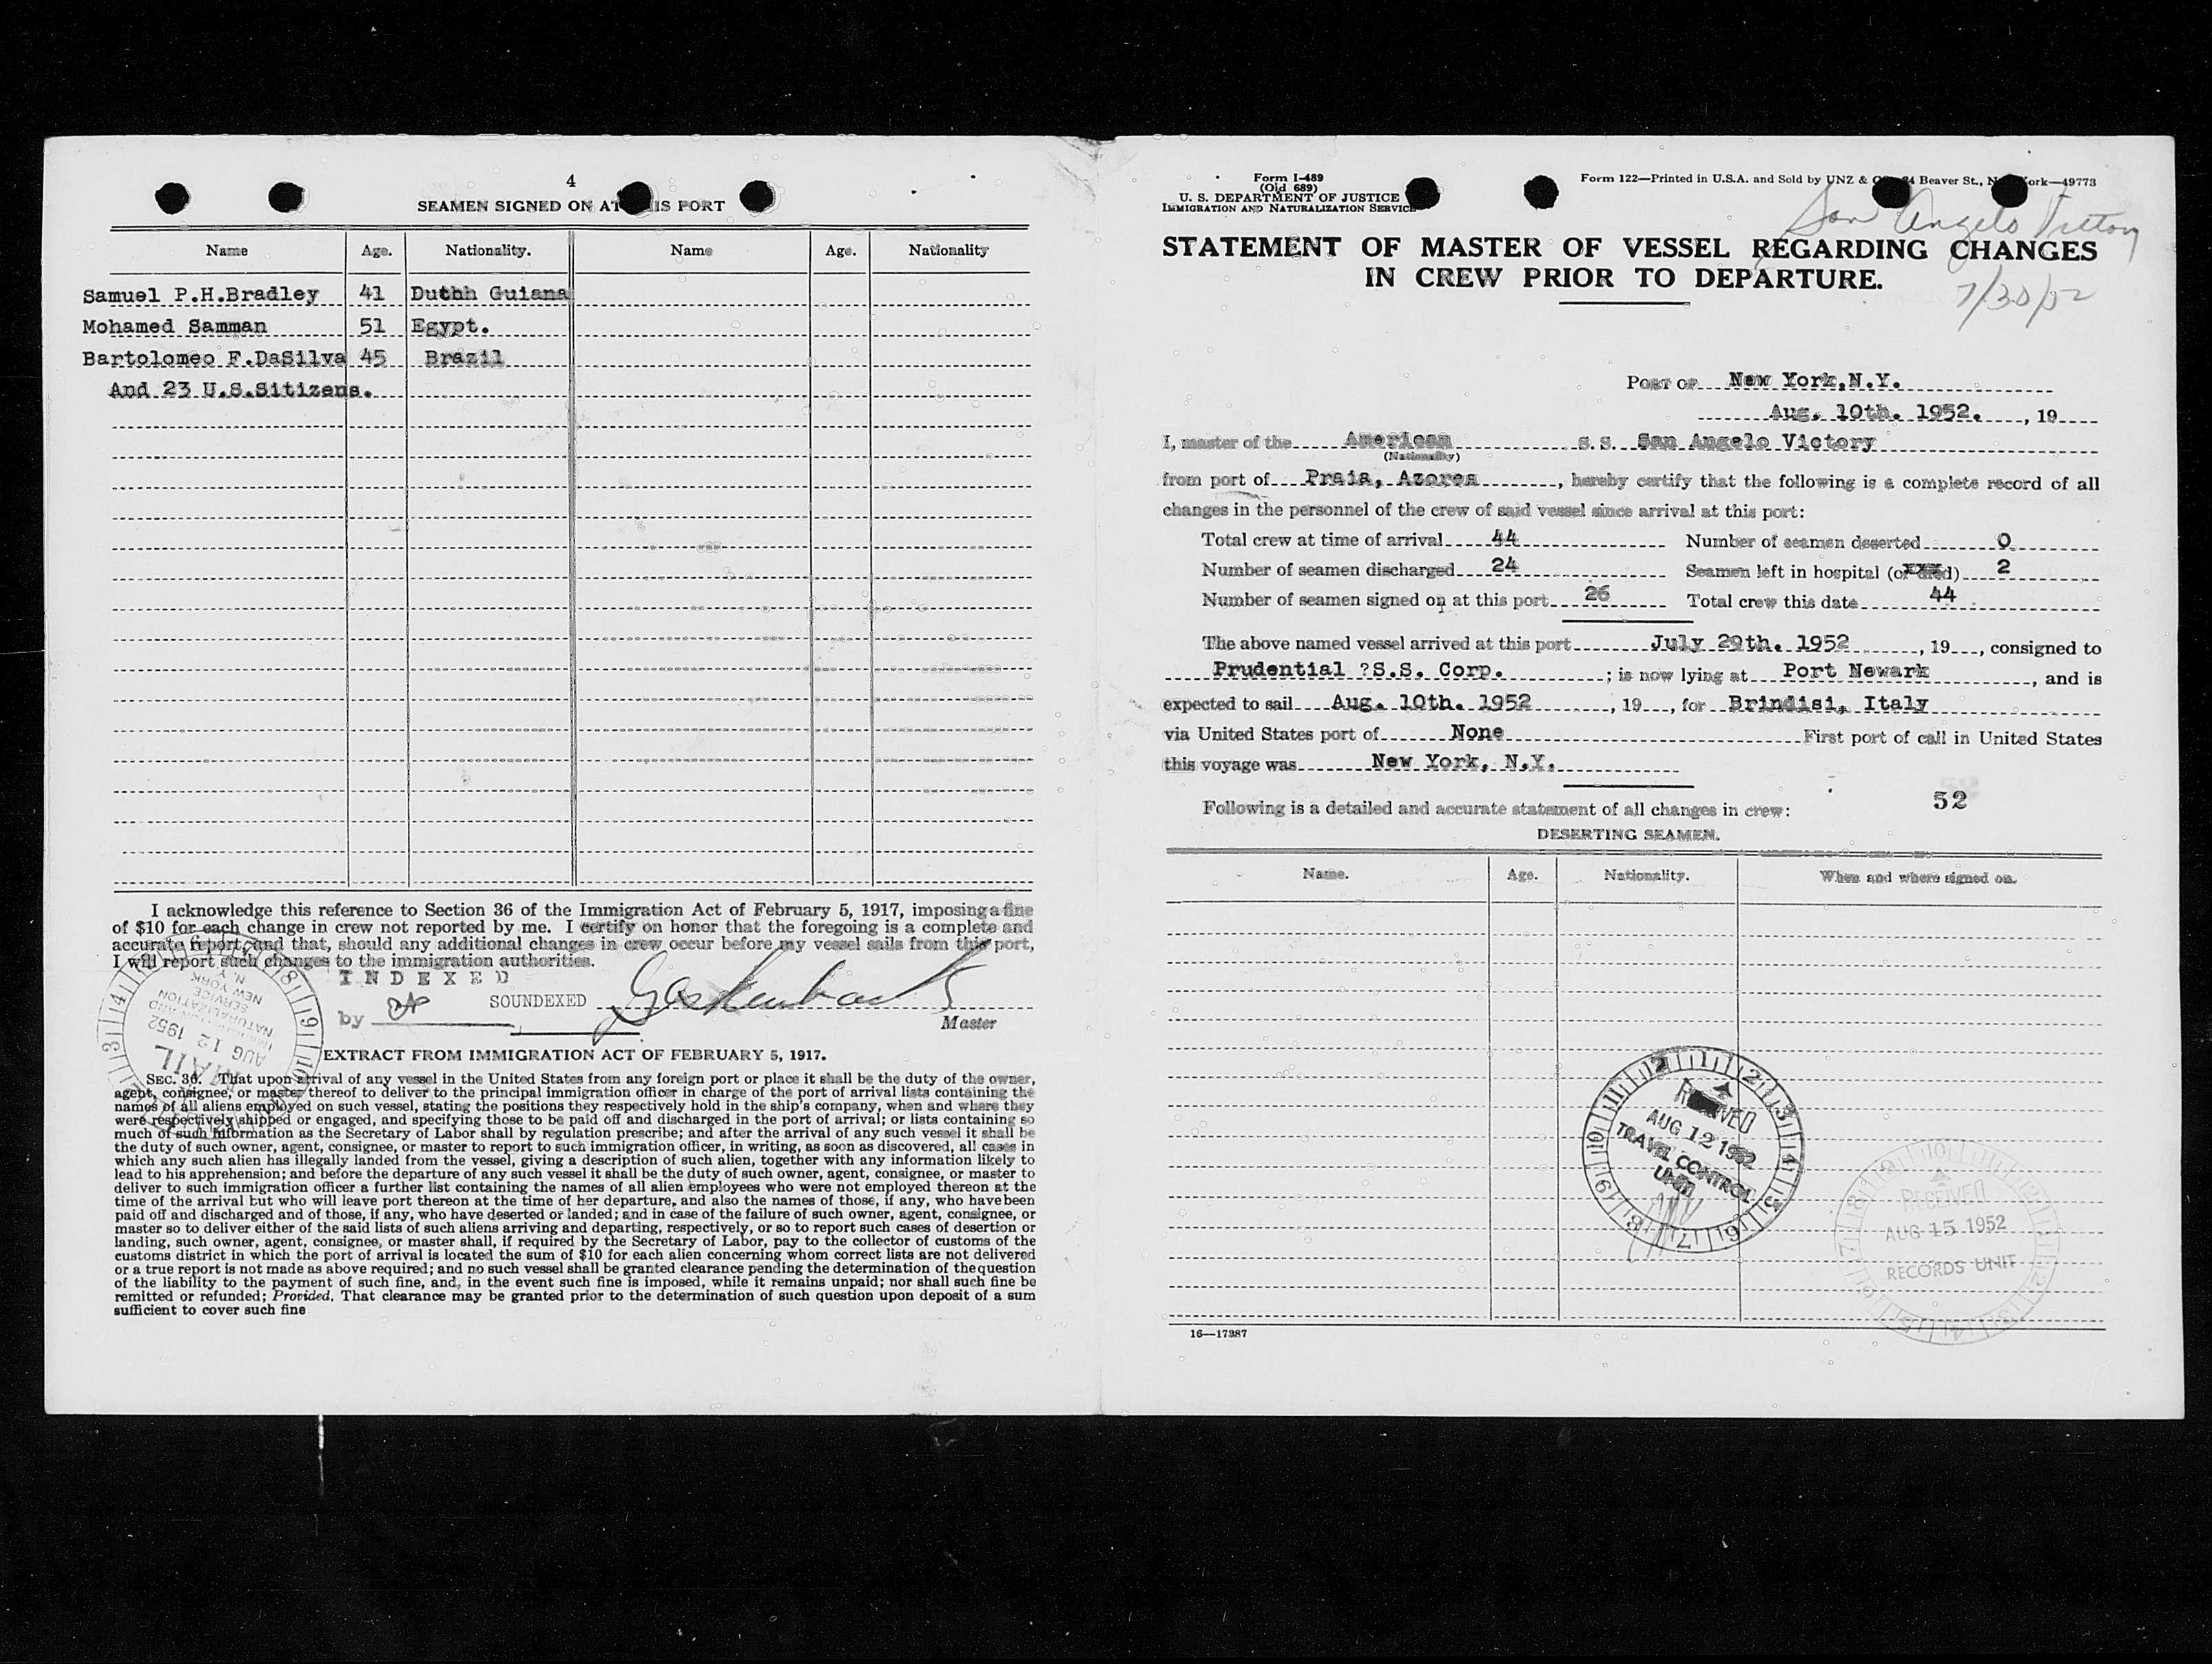 4
SEAMEN SIGNED ON AT THIS PORT
Name Age. Nationality. Name Age. Nationality
Samuel P.H.Bradley 41 Duthh Guiana
Mohamed Samman 51 Egypt.
Bartolomeo F.DaSilva 45 Brazil
And 23 U.S.Sitizens.
I acknowledge this reference to Section 36 of the Immigration Act of February 5, 1917, imposing a fine
of $10 for each change in crew not reported by me. I certify on honor that the foregoing is a complete and
accurate report, and that, should any additional changes in crew occur before my vessel sails from this port,
I will report such changes to the immigration authorities.
INDEXED
SOUNDEXED
by
Master
NEW YORK
N. Y.
AUG 12 1952
MAIL
EXTRACT FROM IMMIGRATION ACT OF FEBRUARY 5, 1917.
SEC. 36. That upon arrival of any vessel in the United States from any foreign port or place it shall be the duty of the owner,
agent, consignee, or master thereof to deliver to the principal immigration officer in charge of the port of arrival lists containing the
names of all aliens employed on such vessel, stating the positions they respectively hold in the ship's company, when and where they
were respectively shipped or engaged, and specifying those to be paid off and discharged in the port of arrival; or lists containing so
much of such information as the Secretary of Labor shall by regulation prescribe; and after the arrival of any such vessel it shall be
the duty of such owner, agent, consignee, or master to report to such immigration officer, in writing, as soon as discovered, all cases in
which any such alien has illegally landed from the vessel, giving a description of such alien, together with any information likely to
lead to his apprehension; and before the departure of any such vessel it shall be the duty of such owner, agent, consignee, or master to
deliver to such immigration officer a further list containing the names of all alien employees who were not employed thereon at the
time of the arrival but who will leave port thereon at the time of her departure, and also the names of those, if any, who have been
paid off and discharged and of those, if any, who have deserted or landed; and in case of the failure of such owner, agent, consignee, or
master so to deliver either of the said lists of such aliens arriving and departing, respectively, or so to report such cases of desertion or
landing, such owner, agent, consignee, or master shall, if required by the Secretary of Labor, pay to the collector of customs of the
customs district in which the port of arrival is located the sum of $10 for each alien concerning whom correct lists are not delivered
or a true report is not made as above required; and no such vessel shall be granted clearance pending the determination of the question
of the liability to the payment of such fine, and, in the event such fine is imposed, while it remains unpaid; nor shall such fine be
remitted or refunded; Provided, That clearance may be granted prior to the determination of such question upon deposit of a sum
sufficient to cover such fine
Form I-489
(Old 689)
U. S. DEPARTMENT OF JUSTICE
IMMIGRATION AND NATURALIZATION SERVICE
Form 122—Printed in U.S.A. and Sold by UNZ & 24 Beaver St., New York—49773
San Angelo Victory
STATEMENT OF MASTER OF VESSEL REGARDING CHANGES
IN CREW PRIOR TO DEPARTURE.
7/30/52
PORT OF New York,N.Y.
Aug. 10th. 1952. , 19
I, master of the American S. S. San Angelo Victory
(Nationality)
from port of Praia, Azores , hereby certify that the following is a complete record of all
changes in the personnel of the crew of said vessel since arrival at this port:
Total crew at time of arrival 44 Number of seamen deserted 0
Number of seamen discharged 24 Seamen left in hospital (or died) 2
Number of seamen signed on at this port 26 Total crew this date 44
The above named vessel arrived at this port July 29th. 1952 , 19 , consigned to
Prudential ?S.S. Corp. ; is now lying at Port Newark , and is
expected to sail Aug. 10th. 1952 , 19 , for Brindisi, Italy
via United States port of None First port of call in United States
this voyage was New York, N.Y.
Following is a detailed and accurate statement of all changes in crew:
52
DESERTING SEAMEN.
Name. Age. Nationality. When and where signed on.
RECEIVED
AUG 12 1952
TRAVEL CONTROL
UNIT
RECEIVED
AUG 15 1952
RECORDS UNIT
16—17387